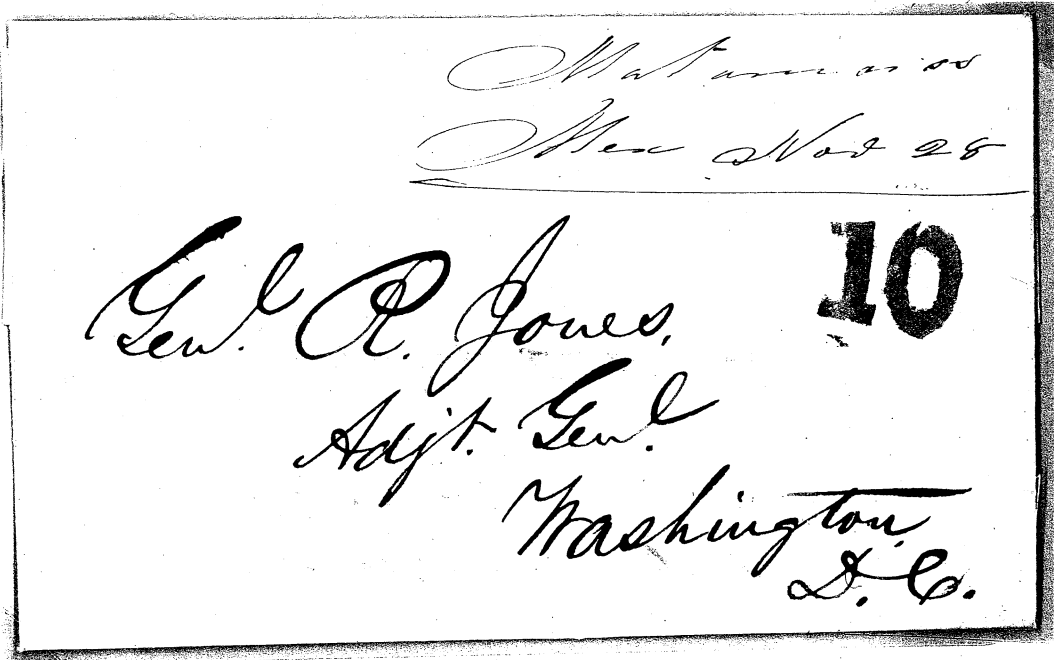 Matamoros
Mex Nov 28
10
Genl. R. Jones,
Adjt. Genl.
Washington
D. C.